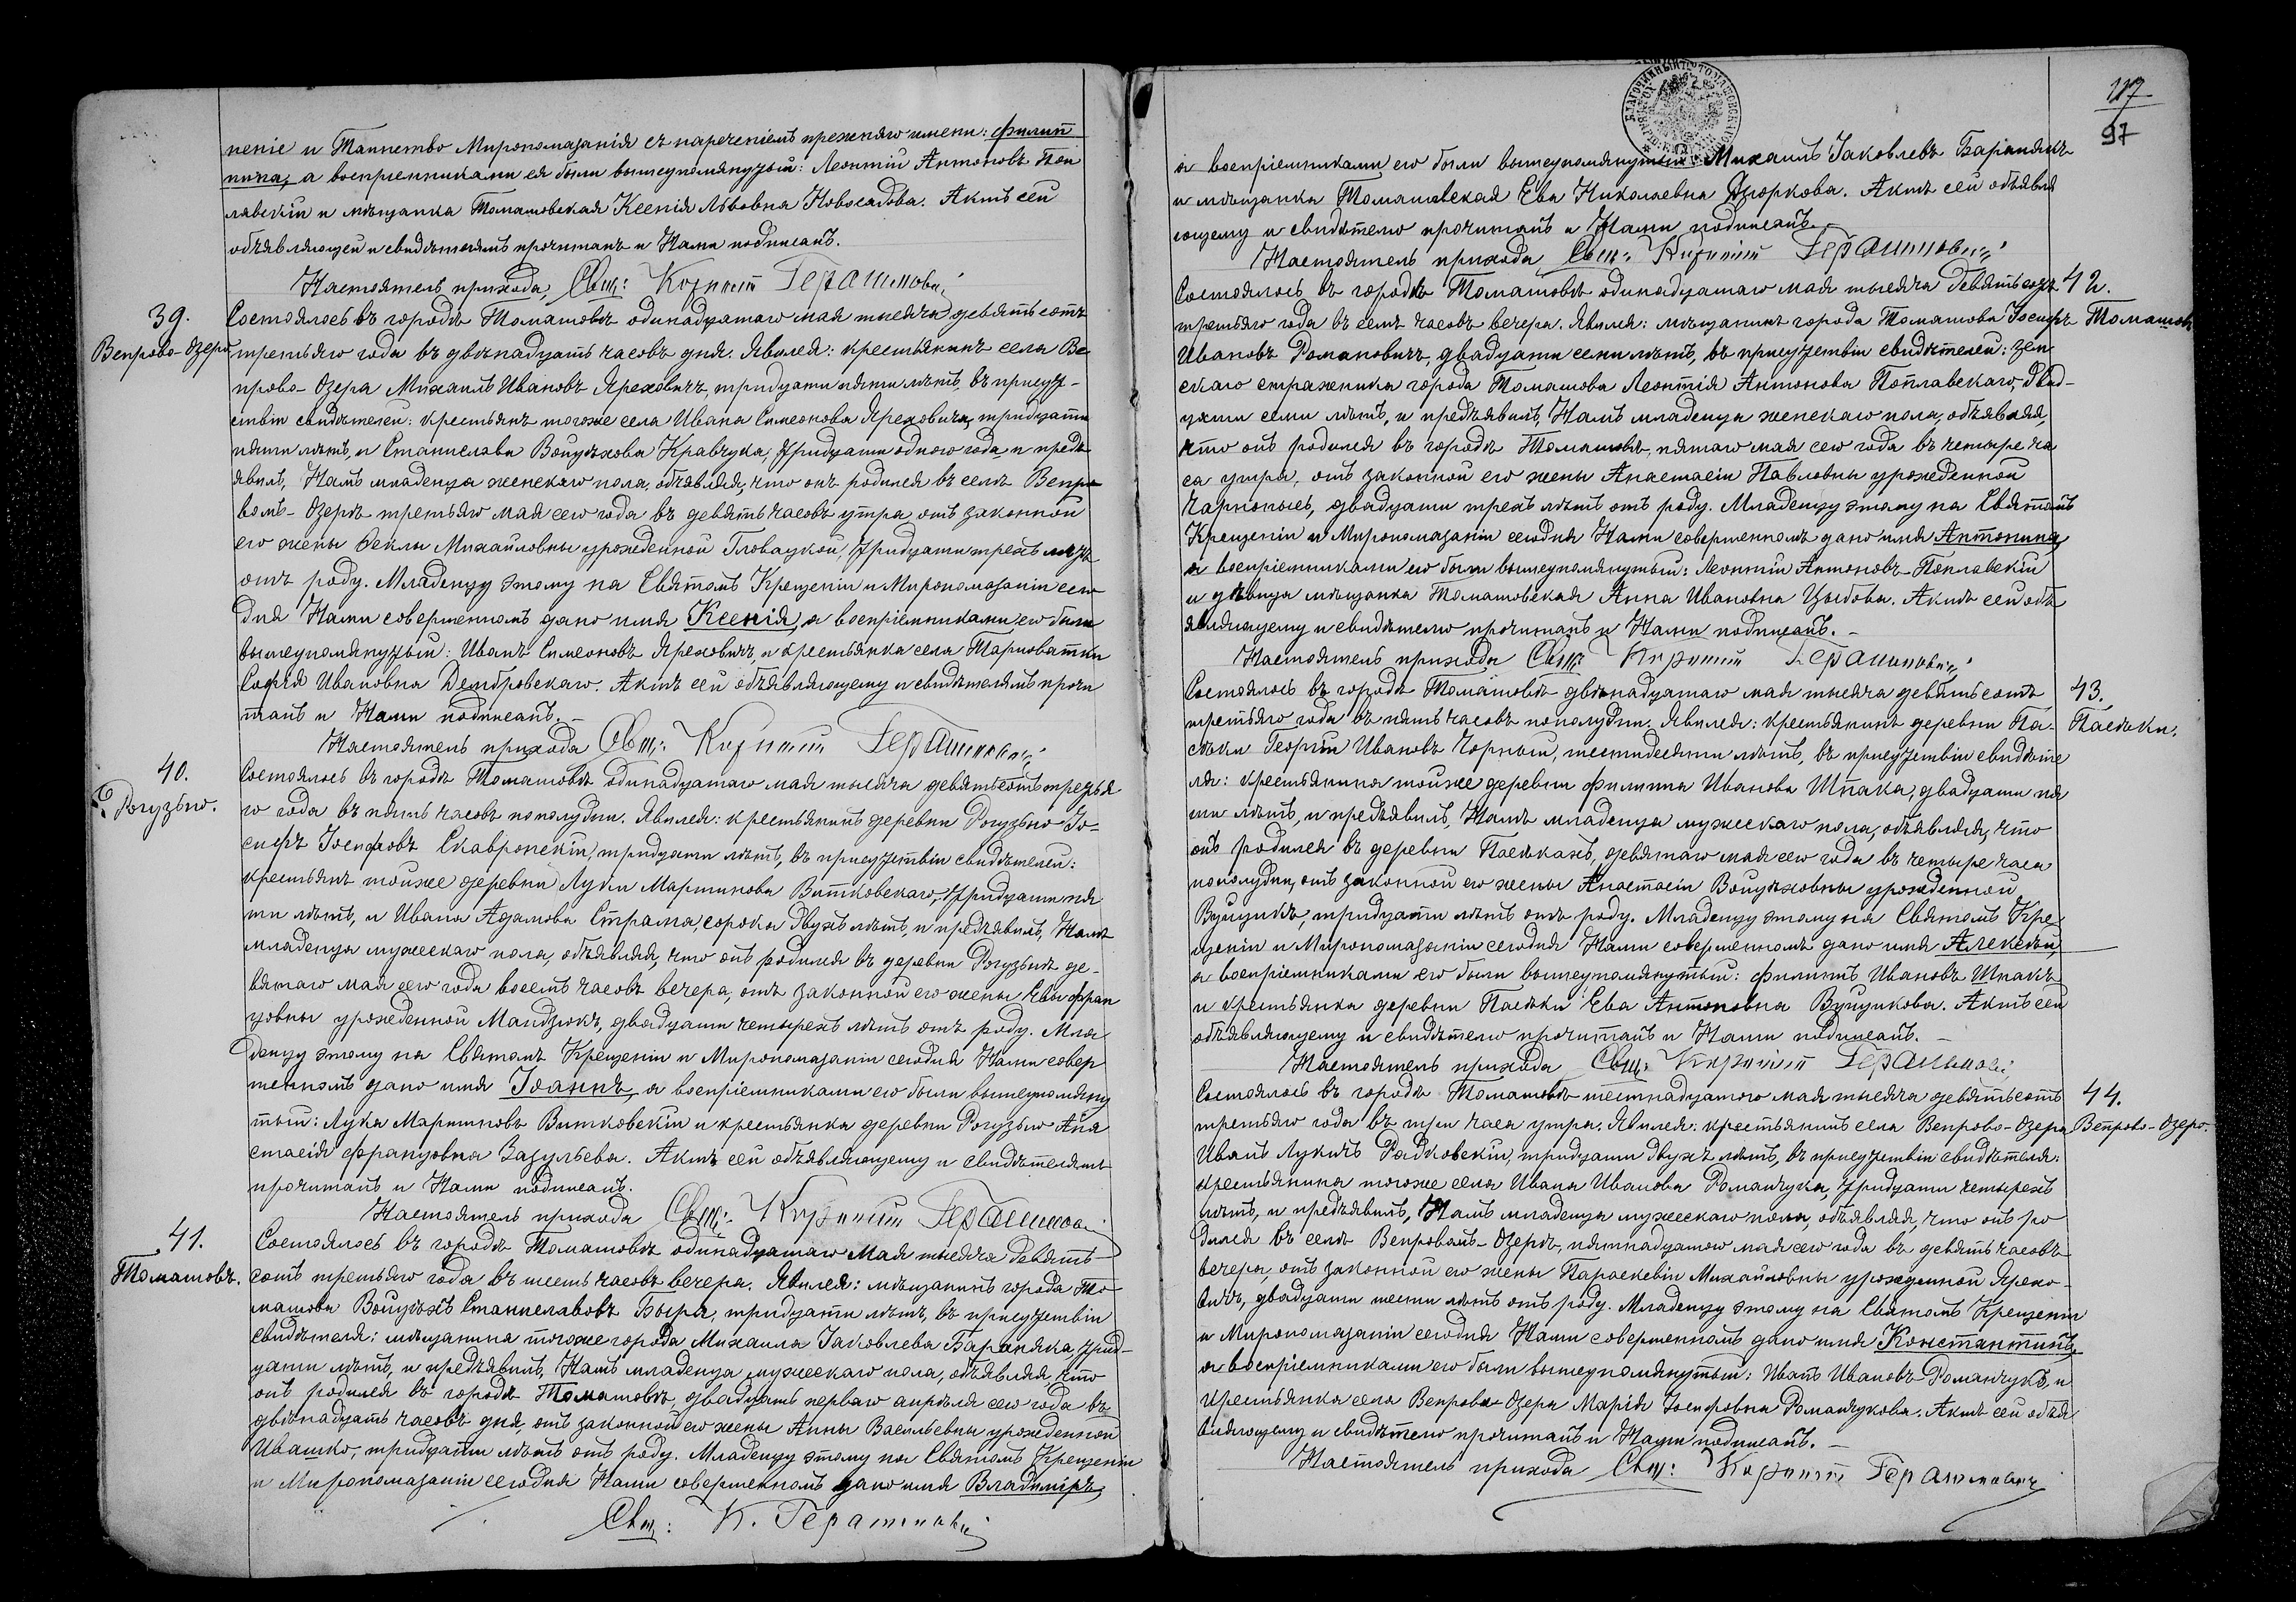 неніе и Таинство Миропомазанія съ нареченіемъ прежняго имени: Филип
пина, а воспріемниками ея были вышеупомянутый: Леонтій Антоновъ Поп
лавскій и мѣщанка Томашовская Ксенія Львовна Новосадова. Актъ сей
объявляющей и свидѣтелямъ прочитанъ и Нами подписанъ.
Настоятель прихода, Свщ:
39.
Вепрово-Озеро
Состоялось въ городѣ Томашовѣ одинадцатаго мая тысяча девятьсотъ
третьяго года въ двѣнадцать часовъ дня. Явился: крестьянинъ села Ве
прово-Озера Михаилъ Ивановъ Яреховичъ, тридцати пяти лѣтъ, въ присут-
ствіи свидѣтелей: крестьянъ тогоже села Ивана Симеонова Яреховича, тридцати
пяти лѣтъ, и Станислава Войцѣхова Кравчука, тридцати одного года и предъ
явилъ, Намъ младенца женскаго пола, объявляя, что онъ родился въ селѣ Вепро
вомъ-Озерѣ третьяго мая сего года въ девять часовъ утра отъ законной
его жены Ѳеклы Михайловны урожденной Гловацкой, тридцати трехъ лѣтъ
отъ роду. Младенцу этому на Святомъ Крещеніи и Миропомазаніи сего
дня Нами совершенномъ дано имя Ксенія, а воспріемниками его были
вышеупомянутый: Иванъ Симеоновъ Яреховичъ, и крестьянка села Тарноватки
Софія Ивановна Дембровскаго. Актъ сей объявляющему и свидѣтелямъ прочи
танъ и Нами подписанъ. —
Настоятель прихода Свщ:
40.
Рогузьно.
Состоялось въ городѣ Томашовѣ одинадцатаго мая тысяча девятьсотъ третья
го года въ пять часовъ пополудни. Явился: крестьянинъ деревни Рогузьно Іо-
сифъ Іосифовъ Скавронскій, тридцати лѣтъ, въ присутствіи свидѣтелей:
крестьянъ тойже деревни Луки Мартинова Витковскаго, тридцати пя
ти лѣтъ, и Ивана Адамова Страма, сорока двухъ лѣтъ, и предъявилъ, Намъ
младенца мужескаго пола, объявляя, что онъ родился въ деревни Рогузьнѣ де-
вятаго мая сего года восемь часовъ вечера, отъ законной его жены Евы Фран
цовны урожденной Мандзюкъ, двадцати четырехъ лѣтъ отъ роду. Мла
денцу этому на Святомъ Крещеніи и Миропомазаніи сегодня Нами совер
шенномъ дано имя Іоаннъ, а воспріемниками его были вышеупомяну
тый: Лука Мартиновъ Витковскій и крестьянка деревни Рогузьно Ана
стасія Францовна Загульева. Актъ сей объявляющему и свидѣтелямъ
прочитанъ и Нами подписанъ.
Настоятель прихода Свщ:
41.
Томашовъ.
Состоялось въ городѣ Томашовѣ одинадцатаго Мая тысяча девять-
сотъ третьяго года въ шесть часовъ вечера. Явился: мѣщанинъ города То-
машова Войцѣхъ Станиславовъ Бысра, тридцати лѣтъ, въ присутствіи
свидѣтеля: мѣщанина тогоже города Михаила Іаковлева Бараняка, трид-
цати лѣтъ, и предъявилъ, Намъ младенца мужескаго пола, объявляя, что
онъ родился въ городѣ Томашовѣ, двадцать перваго апрѣля сего года въ
двѣнадцать часовъ дня, отъ законной его жены Анны Васильевны урожденной
Ивашко, тридцати лѣтъ отъ роду. Младенцу этому на Святомъ Крещеніи
и Миропомазаніи сегодня Нами совершенномъ дано имя Владиміръ,
Свщ: К. Герашимовъ
117
97
а воспріемниками его были вышеупомянутый Михаилъ Іаковлевъ Баранякъ
и мѣщанка Томашовская Ева Николаевна Дзюркова. Актъ сей объявля
ющему и свидѣтелю прочитанъ и Нами подписанъ. —
Настоятель прихода Свщ:
42.
Томашовъ
Состоялось въ городѣ Томашовѣ одинадцатаго мая тысяча девятьсотъ
третьяго года въ семь часовъ вечера. Явился: мѣщанинъ города Томашова Іосифъ
Ивановъ Романовичъ, двадцати семи лѣтъ, въ присутствіи свидѣтелей: зем
скаго стражника города Томашова Леонтія Антонова Поплавскаго, двад-
цати семи лѣтъ, и предъявилъ, Намъ младенца женскаго пола, объявляя,
что онъ родился въ городѣ Томашовѣ, пятаго мая сего года въ четыре ча
са утра, отъ законной его жены Анастасіи Павловны урожденной
Чарнопысь, двадцати трехъ лѣтъ отъ роду. Младенцу этому на Святомъ
Крещеніи и Миропомазаніи сегодня Нами совершенномъ дано имя Антонина,
а воспріемниками его были вышеупомянутый: Леонтій Антоновъ Поплавскій
и дѣвица мѣщанка Томашовская Анна Ивановна Цыбова. Актъ сей объ
являющему и свидѣтелю прочитанъ и Нами подписанъ. —
Настоятель прихода Свщ:
43.
Пасѣки.
Состоялось въ городѣ Томашовѣ двѣнадцатаго мая тысяча девятьсотъ
третьяго года въ пять часовъ пополудни. Явился: крестьянинъ деревни Па-
сѣки Георгій Ивановъ Чорный, шестидесяти лѣтъ, въ присутствіи свидѣте
ля: крестьянина тойже деревни Филиппа Иванова Шпака, двадцати пя
ти лѣтъ, и предъявилъ, Намъ младенца мужескаго пола, объявляя, что
онъ родился въ деревни Пасѣкахъ, девятаго мая сего года въ четыре часа
пополудни, отъ законной его жены Анастасіи Войцѣховны урожденной
Вуйцикъ, тридцати лѣтъ отъ роду. Младенцу этому на Святомъ Кре
щеніи и Миропомазаніи сегодня Нами совершенномъ дано имя Алексѣй,
а воспріемниками его были вышеупомянутый: Филиппъ Ивановъ Шпакъ
и крестьянка деревни Пасѣки Ева Антоновна Вуйцикова. Актъ сей
объявляющему и свидѣтелю прочитанъ и Нами подписанъ. —
Настоятель прихода Свщ:
44.
Вепрово-Озеро.
Состоялось въ городѣ Томашовѣ шестнадцатого мая тысяча девятьсотъ
третьяго года въ три часа утра. Явился: крестьянинъ села Вепрово-Озера
Иванъ Лукичъ Радковскій, тридцати двухъ лѣтъ, въ присутствіи свидѣтеля:
крестьянина тогоже села Ивана Иванова Романчука, тридцати четырехъ
лѣтъ, и предъявилъ, Намъ младенца мужескаго пола, объявляя, что онъ ро
дился въ селѣ Вепровомъ-Озерѣ, пятнадцатого мая сего года въ девять часовъ
вечера, отъ законной его жены Параскевіи Михайловны урожденной Ярехо-
вичъ, двадцати шести лѣтъ отъ роду. Младенцу этому на Святомъ Крещеніи
и Миропомазаніи сегодня Нами совершенномъ дано имя Константинъ,
а воспріемниками его были вышеупомянутый: Иванъ Ивановъ Романчукъ, и
крестьянка села Вепрова-Озера Марія Іосифовна Романчукова. Актъ сей объя
вляющему и свидѣтелю прочитанъ и Нами подписанъ. —
Настоятель прихода Свщ: